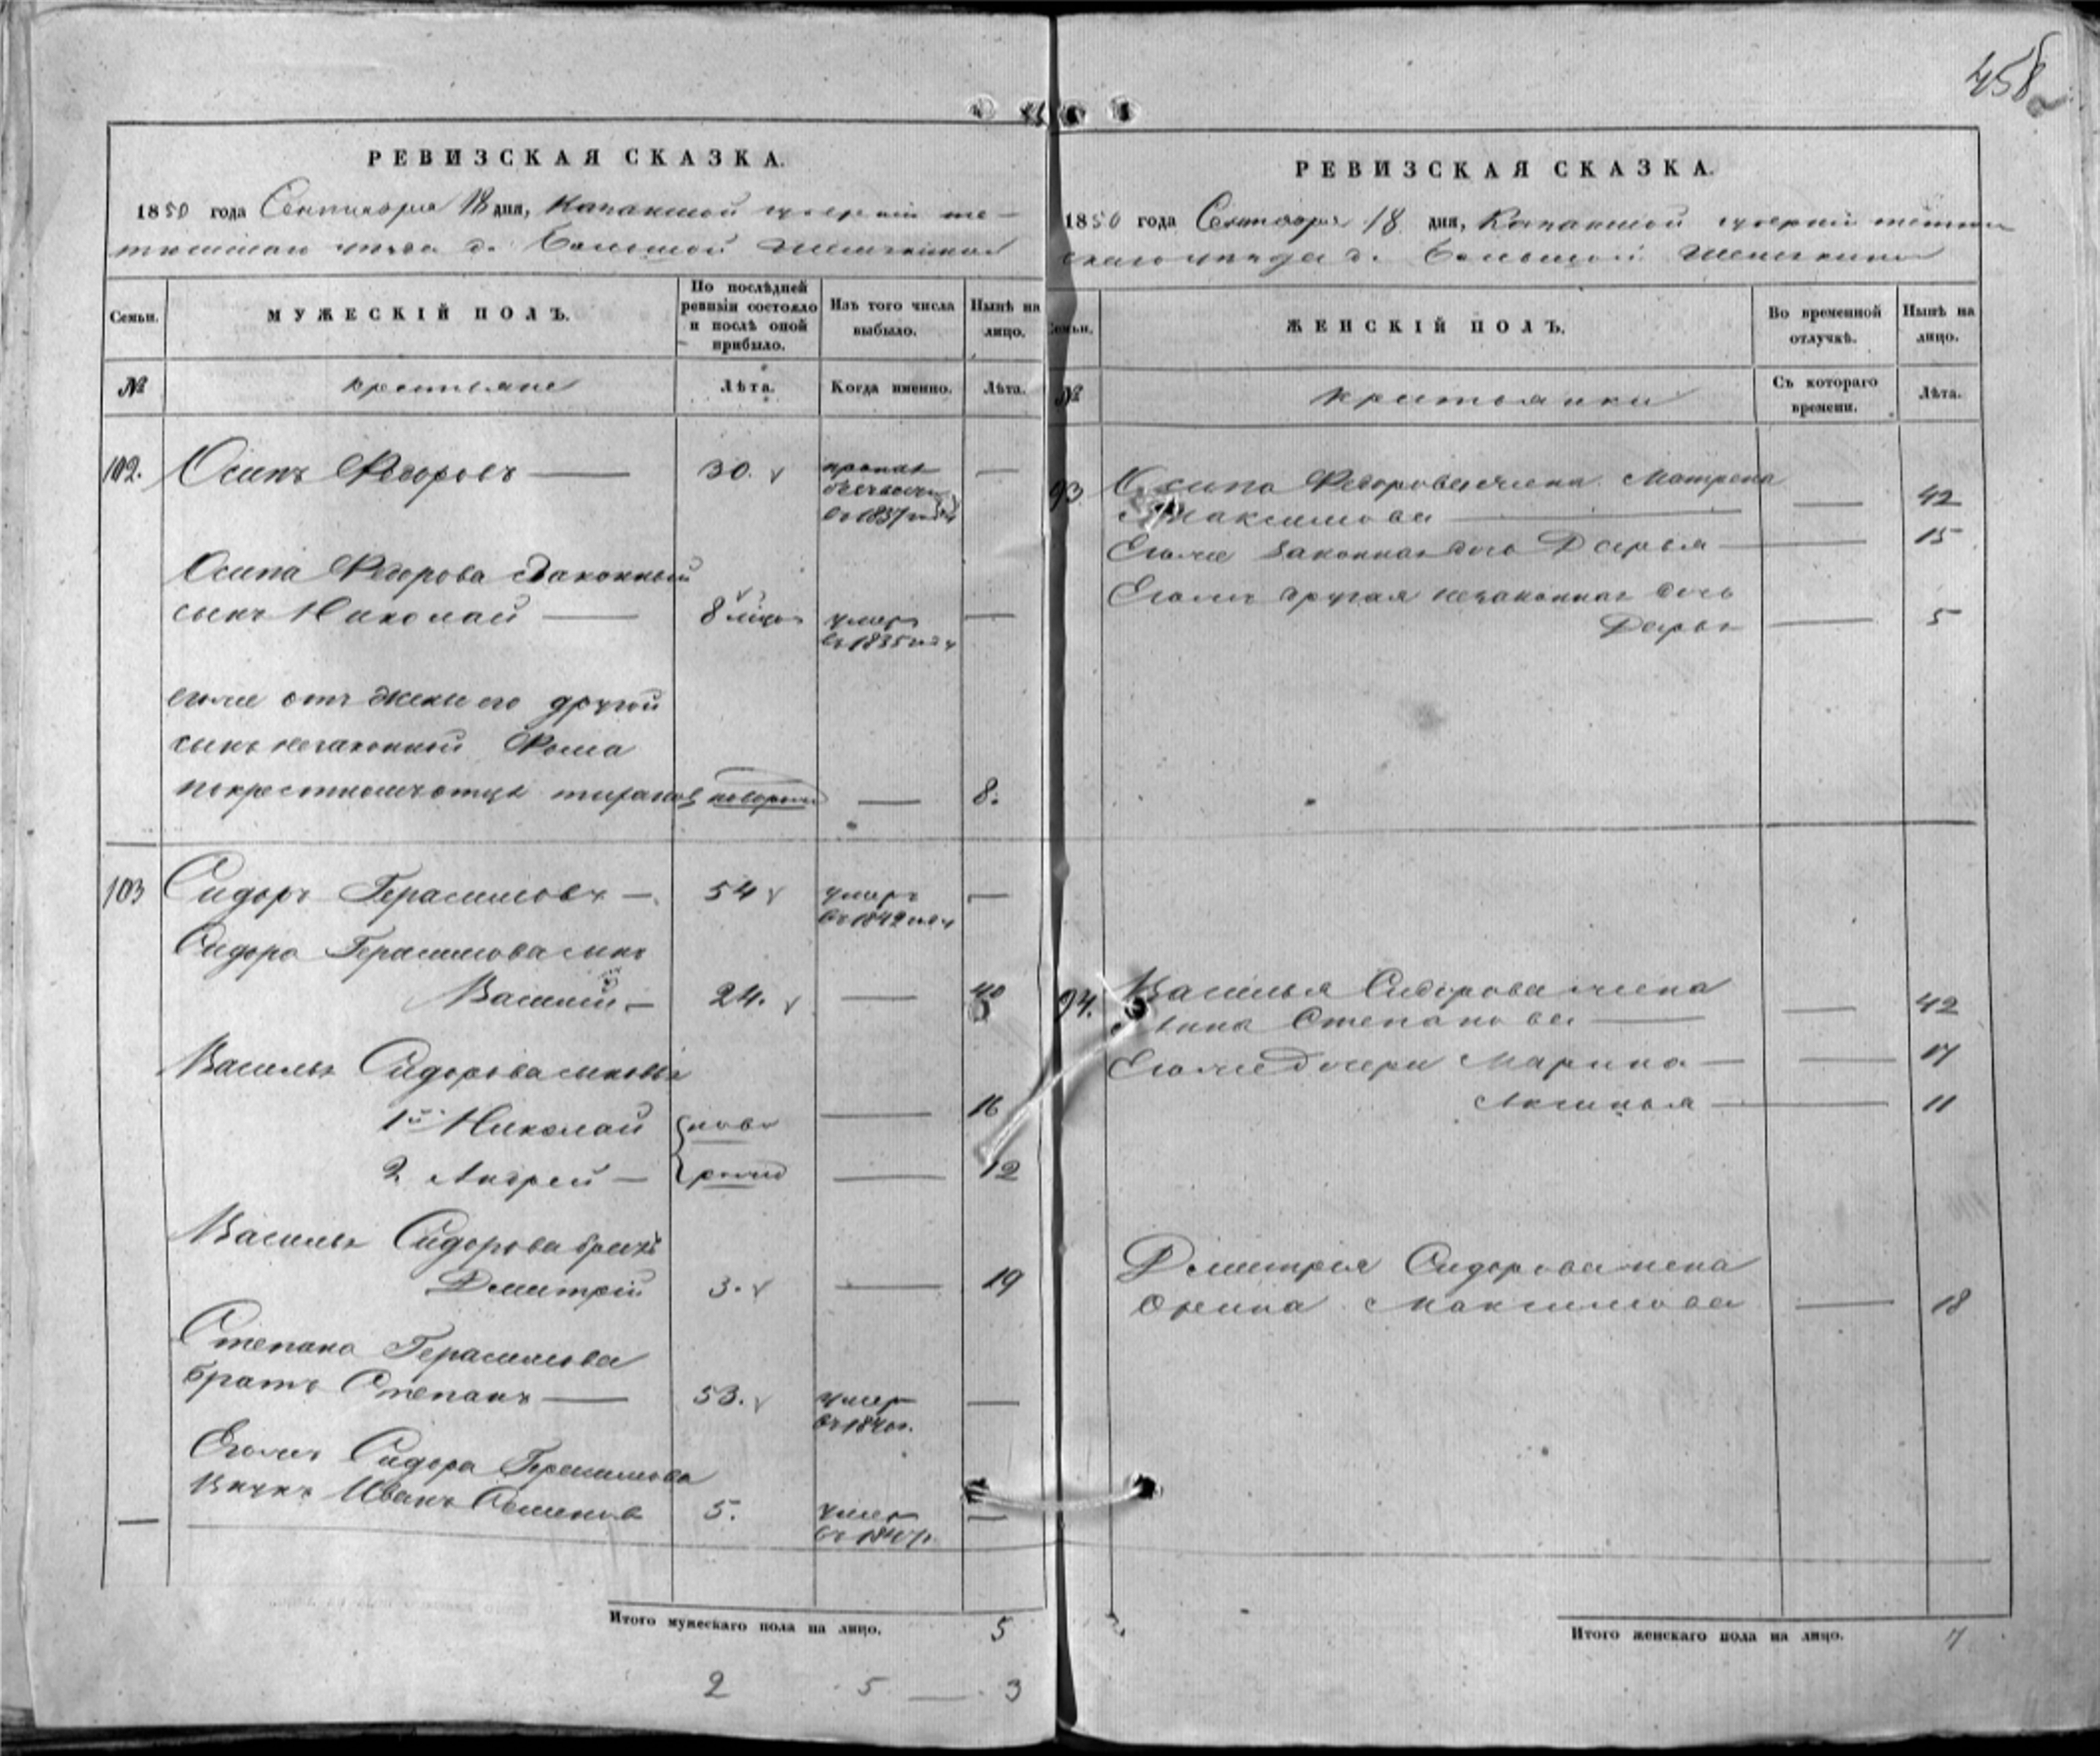 458
РЕВИЗСКАЯ СКАЗКА.
1850 года Сентября 18 дня, Казанской губернии те-
тюшскаго уезда д. Большой
Семьи.
МУЖЕСКІЙ ПОЛЪ.
По послѣдней ревизіи состояло и послѣ оной прибыло.
Изъ того числа выбыло.
Нынѣ на лицо.
№
крестьяне
Лѣта.
Когда именно.
Лѣта.
102. Осипъ Федоровъ — 30. —
въ 1837 году
Осипа Федорова законный
сынъ Николай — 8 умеръ —
въ 1835 году
его же отъ жены его другой
сынъ незаконный Фома
по крестному отцу новорож — 8.
103 Сидоръ Герасимовъ — 54 умеръ —
въ 1842 году
Сидора Герасимова сынъ
Василий — 24. — 40
Василья Сидорова сыновья
1й Николай ново — 16
2 Андрей — рожд — 12
Василья Сидорова братъ
Дмитрій 3. — 19
Степана Герасимова
братъ Степанъ — 53. умер —
въ 1840 г.
Его же Сидора Герасимова
внукъ Иванъ Семеновъ 5. умер —
Итого мужескаго пола на лицо. 5
2 5 — 3
РЕВИЗСКАЯ СКАЗКА.
1850 года Сентября 18 дня, Казанской губернии тетюш
скаго уезда д. Большой
Семьи.
ЖЕНСКІЙ ПОЛЪ.
Во временной отлучкѣ.
Нынѣ на лицо.
№
крестьянки
Съ котораго времени.
Лѣта.
93 Осипа Федорова жена Матрена
Максимова — — 42
Его же законная дочь Дарья — 15
Его же другая незаконная дочь
Дарья — 5
94. Василья Сидорова жена
Анна Степанова — — 42
Его же дочери Марина — — 17
Аксинья — 11
Дмитрия Сидорова жена
Орина Максимова — 18
Итого женскаго пола на лицо. 7